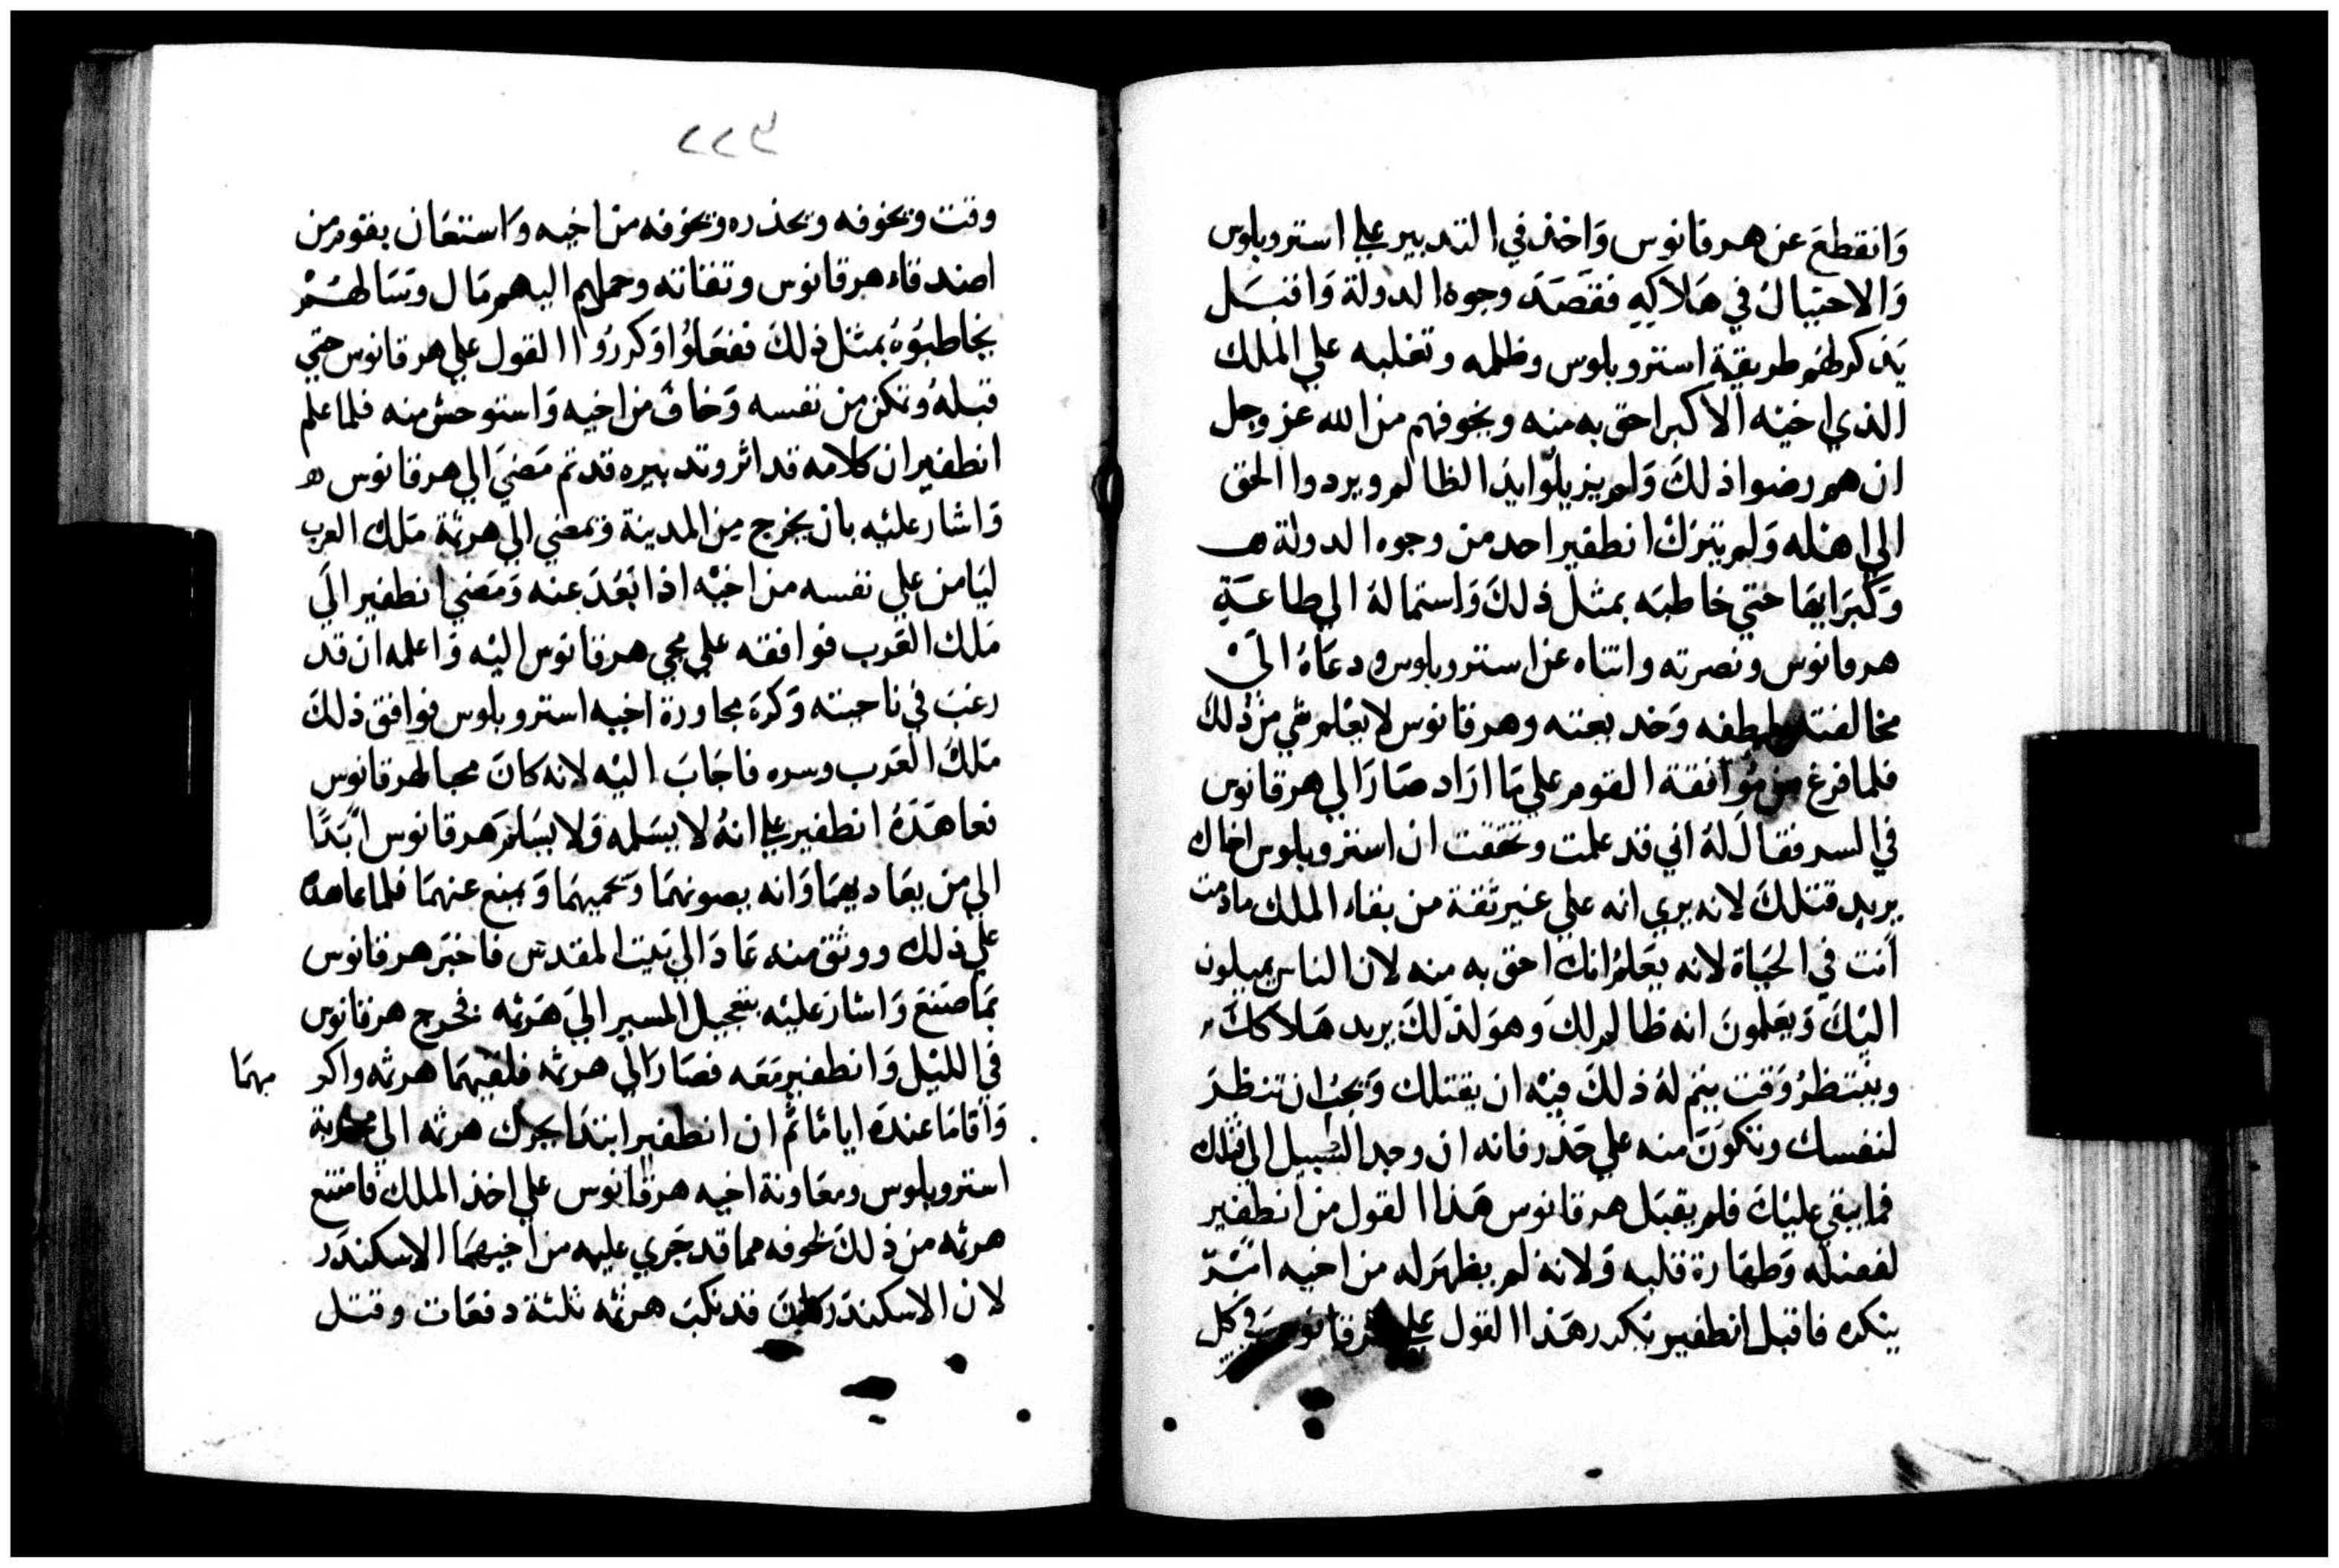 وَانقطعَ عن هرقانوس وَاخذ في التدبير علي استروبلوس
وَالاحتيال في هَلاكِهِ فقصَدَ وجوه الدولة وَاقبَل
يَذكر لهم طريقة استروبلوس وظلمه وتغلبه علي الملك
الذي اخيه الاكبر احق به منه ويخوفهم من الله عز وجل
ان هم رضوا ذلكَ وَلم يزيلوا يد الظالم ويردوا الحق
الي اهله وَلم يترك انطفير احد من وجوه الدولة
وَكبرَايهَا حتي خاطبَه بمثل ذلكَ وَاستمالهُ الي طاعَةِ
هرقانوس ونصرته واثناه عن استروبلوس ودعَاهُ اليَ
مخالفته بلطفه وَخديعته وهرقانوس لا يعلم شي من ذلك
فلما فرغ من مُوافقة القوم علي مَا ارَاد صَارَ الي هرقانوس
في السر فقالَ لهُ اني قد علمت وتحققت ان استروبلوس اخاك
يريد قتلكَ لانه يري انه علي غير ثقة من بقاء الملك مادمت
اَنت في الحَيَاة لانه يعَلمُ انك احق به منه لان الناس يميلون
اليَكَ وَيَعلمونَ انه ظالم لك وهوَ لذلكَ يريد هَلاكك
وينتظرُ وَقت يتم لهُ ذلكَ فيه ان يقتلك وَيجبُ ان تنظرَ
لنفسك وتكونَ منه علي حَذر فانه ان وجد السَبيل الي قتلك
فما يبقي عليكَ فلم يقبَل هرقانوس هَذا القول من انطفير
لفضله وَطهَارة قلبه وَلانه لم يظهَر له من اخيه امَرًّ
ينكره فاقبل انطفير يكرر هَذا القول علي هرقانوس في كل
٢٢٤
وقت ويخوفه ويحذره ويخوفه من اخيه وَاستعَان بقوم من
اصدقاء هرقانوس وثقاته وحمل اليهم مَال وسَالهُم
يخاطبُوُهُ بمثل ذلكَ ففعَلوُا وَكررُوا القول علي هرقانوس حتي
قبلهُ وتمكن من نفسه وَخاف من اخيه وَاستوحش منه فلما علم
انطفير ان كلامه قد اثر وتدبيره قد تم مَضيَ الي هرقانوس
وَاشار عليه بان يخرج من المدينة ويمضي الي هرثمة مَلك العرب
ليَامن علي نفسه من اخيه اذا بَعُدَ عنه وَمَضي انطفير اليَ
مَلك العَرب فوافقه علي مجي هرقانوس اليه وَاعلمه ان قد
رغبَ في ناحيته وَكرهَ مجاورة اخيه استروبلوس فوافق ذلكَ
مَلكُ العَرب وسره فاجَابَ اليه لانه كانَ محبا لهرقانوس
فعاهَدَهُ انطفير علي انهُ لا يسَلمه وَلا يسَلم هرقانوس ابَدًا
الي من يعَاديهمَا وَانه يصونهمَا وَيحميهمَا وَيمنع عنهمَا فلما عاهده
علي ذلك ووثق منه عَادَ الي بَيت المقدس فاخبرَ هرقانوس
بمَا صَنعَ وَاشارَ عليَه بتعجيل المسير اليَ هَرثمه فخرج هرقانوس
في الليَل وَانطفير مَعَه فصَارَا الي هرثمه فلقيَهمَا هرثمه واكر
مهمَا
وَاقامَا عندَه ايامًا ثم ان انطفير ابتدَا يحرك هرثمه الي محاربة
استروبلوس ومعَاونة اخيه هرقانوس علي اخذ الملك فامتنع
هرثمه من ذلكَ لخوفه مما قد جَري عليه من اخيهمَا الاسكندَر
لان الاسكندَر كانَ قد نكبَ هرثمه ثلثة دفعَات وقتل